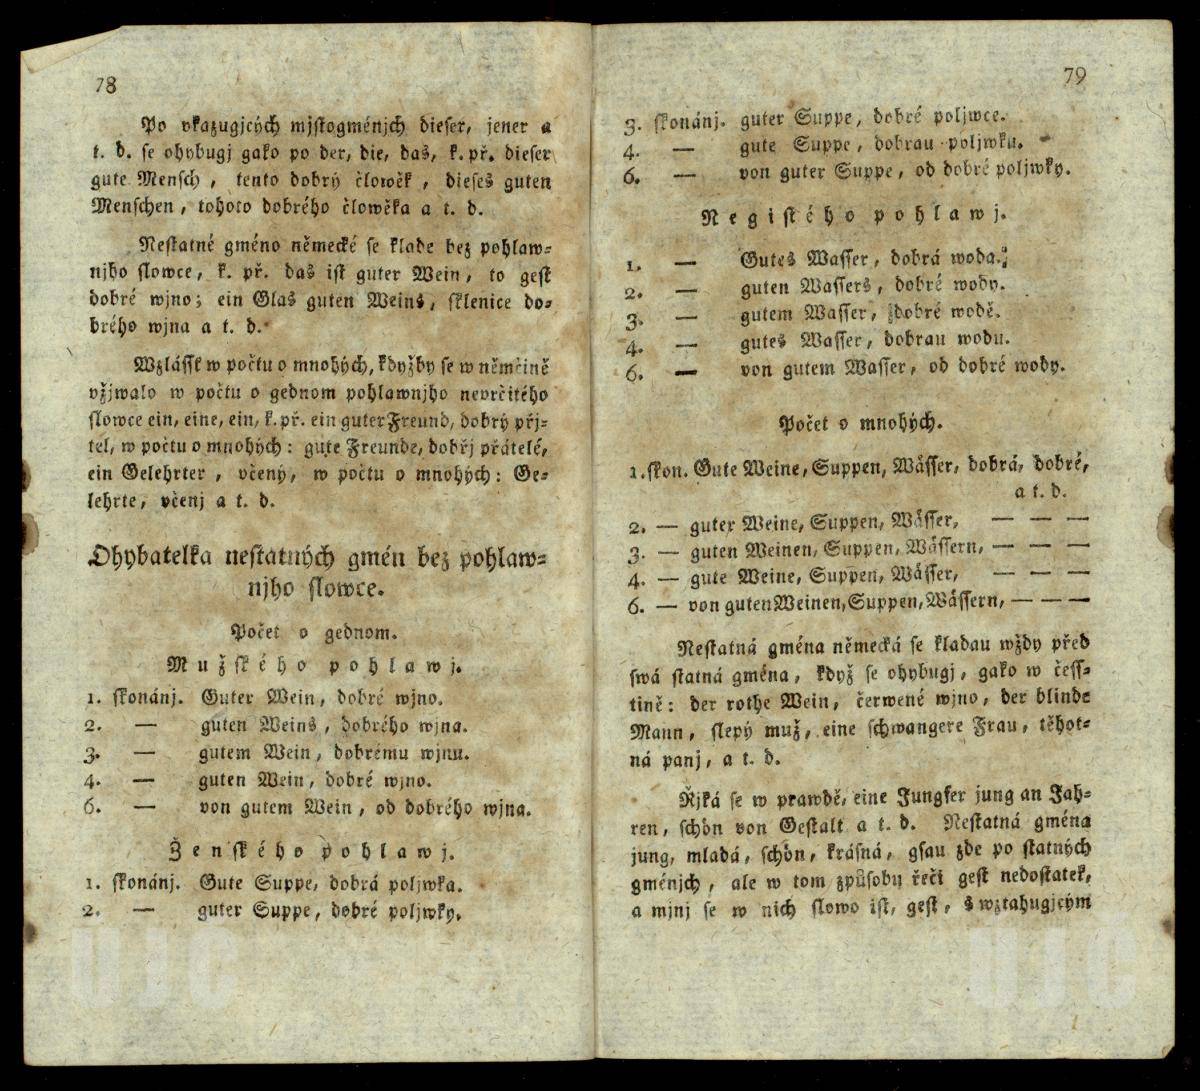 78
Po vkazugjcých mjstogménjch dieser, jener a
t. d. se ohybugj gako po der, die, das, k. př. dieser
gute Mensch, tento dobrý člowěk, dieses guten
Menschen, tohoto dobrého člowěka a t. d.
Nestatné gméno německé se klade bez pohlaw=
njho slowce, k. př. das ist guter Wein, to gest
dobré wjno; ein Glas guten Weins, sklenice do=
brého wjna a t. d.
Wzlásst w počtu o mnohých, kdyžby se w němčině
vžjwalo w počtu o gednom pohlawnjho nevrčitého
slowce ein, eine, ein, k. př. ein guter Freund, dobrý přj=
tel, w počtu o mnohých: gute Freunde, dobřj přátelé,
ein Gelehrter, včený, w počtu o mnohých: Ge=
lehrte, včenj a t. d.
Ohybatelka nestatných gmén bez pohlaw=
njho slowce.
Počet o gednom.
Mužského pohlawj.
1. skonánj. Guter Wein, dobré wjno.
2. — guten Weins, dobrého wjna.
3. — gutem Wein, dobrému wjnu.
4. — guten Wein, dobré wjno.
6. — von gutem Wein, od dobrého wjna.
Ženského pohlawj.
1. skonánj. Gute Suppe, dobrá poljwka.
2. — guter Suppe, dobré poljwky.
79
3. skonánj. guter Suppe, dobré poljwce.
4. — gute Suppe, dobrau poljwku.
6. — von guter Suppe, od dobré poljwky.
Negistého pohlawj.
1. — Gutes Wasser, dobrá woda.
2. — guten Wassers, dobré wody.
3. — gutem Wasser, dobré wodě.
4. — gutes Wasser, dobrau wodu.
6. — von gutem Wasser, od dobré wody.
Počet o mnohých.
1. skon. Gute Weine, Suppen, Wässer, dobrá, dobré,
a t. d.
2. — guter Weine, Suppen, Wässer, — — —
3. — guten Weinen, Suppen, Wässern, — — —
4. — gute Weine, Suppen, Wässer, — — —
6. — von guten Weinen, Suppen, Wässern, — — —
Nestatná gména německá se kladau wždy před
swá statná gména, když se ohybugj, gako w čess=
tině: der rothe Wein, čerwené wjno, der blinde
Mann, slepý muž, eine schwangere Frau, těhot=
ná panj, a t. d.
Řjká se w prawdě, eine Jungfer jung an Jah=
ren, schön von Gestalt a t. d. Nestatná gména
jung, mladá, schön, krásná, gsau zde po statných
gménjch, ale w tom způsobu řeči gest nedostatek,
a mjnj se w nich slowo ist, gest, s wztahugjcým
ÚJČ
ÚJČ